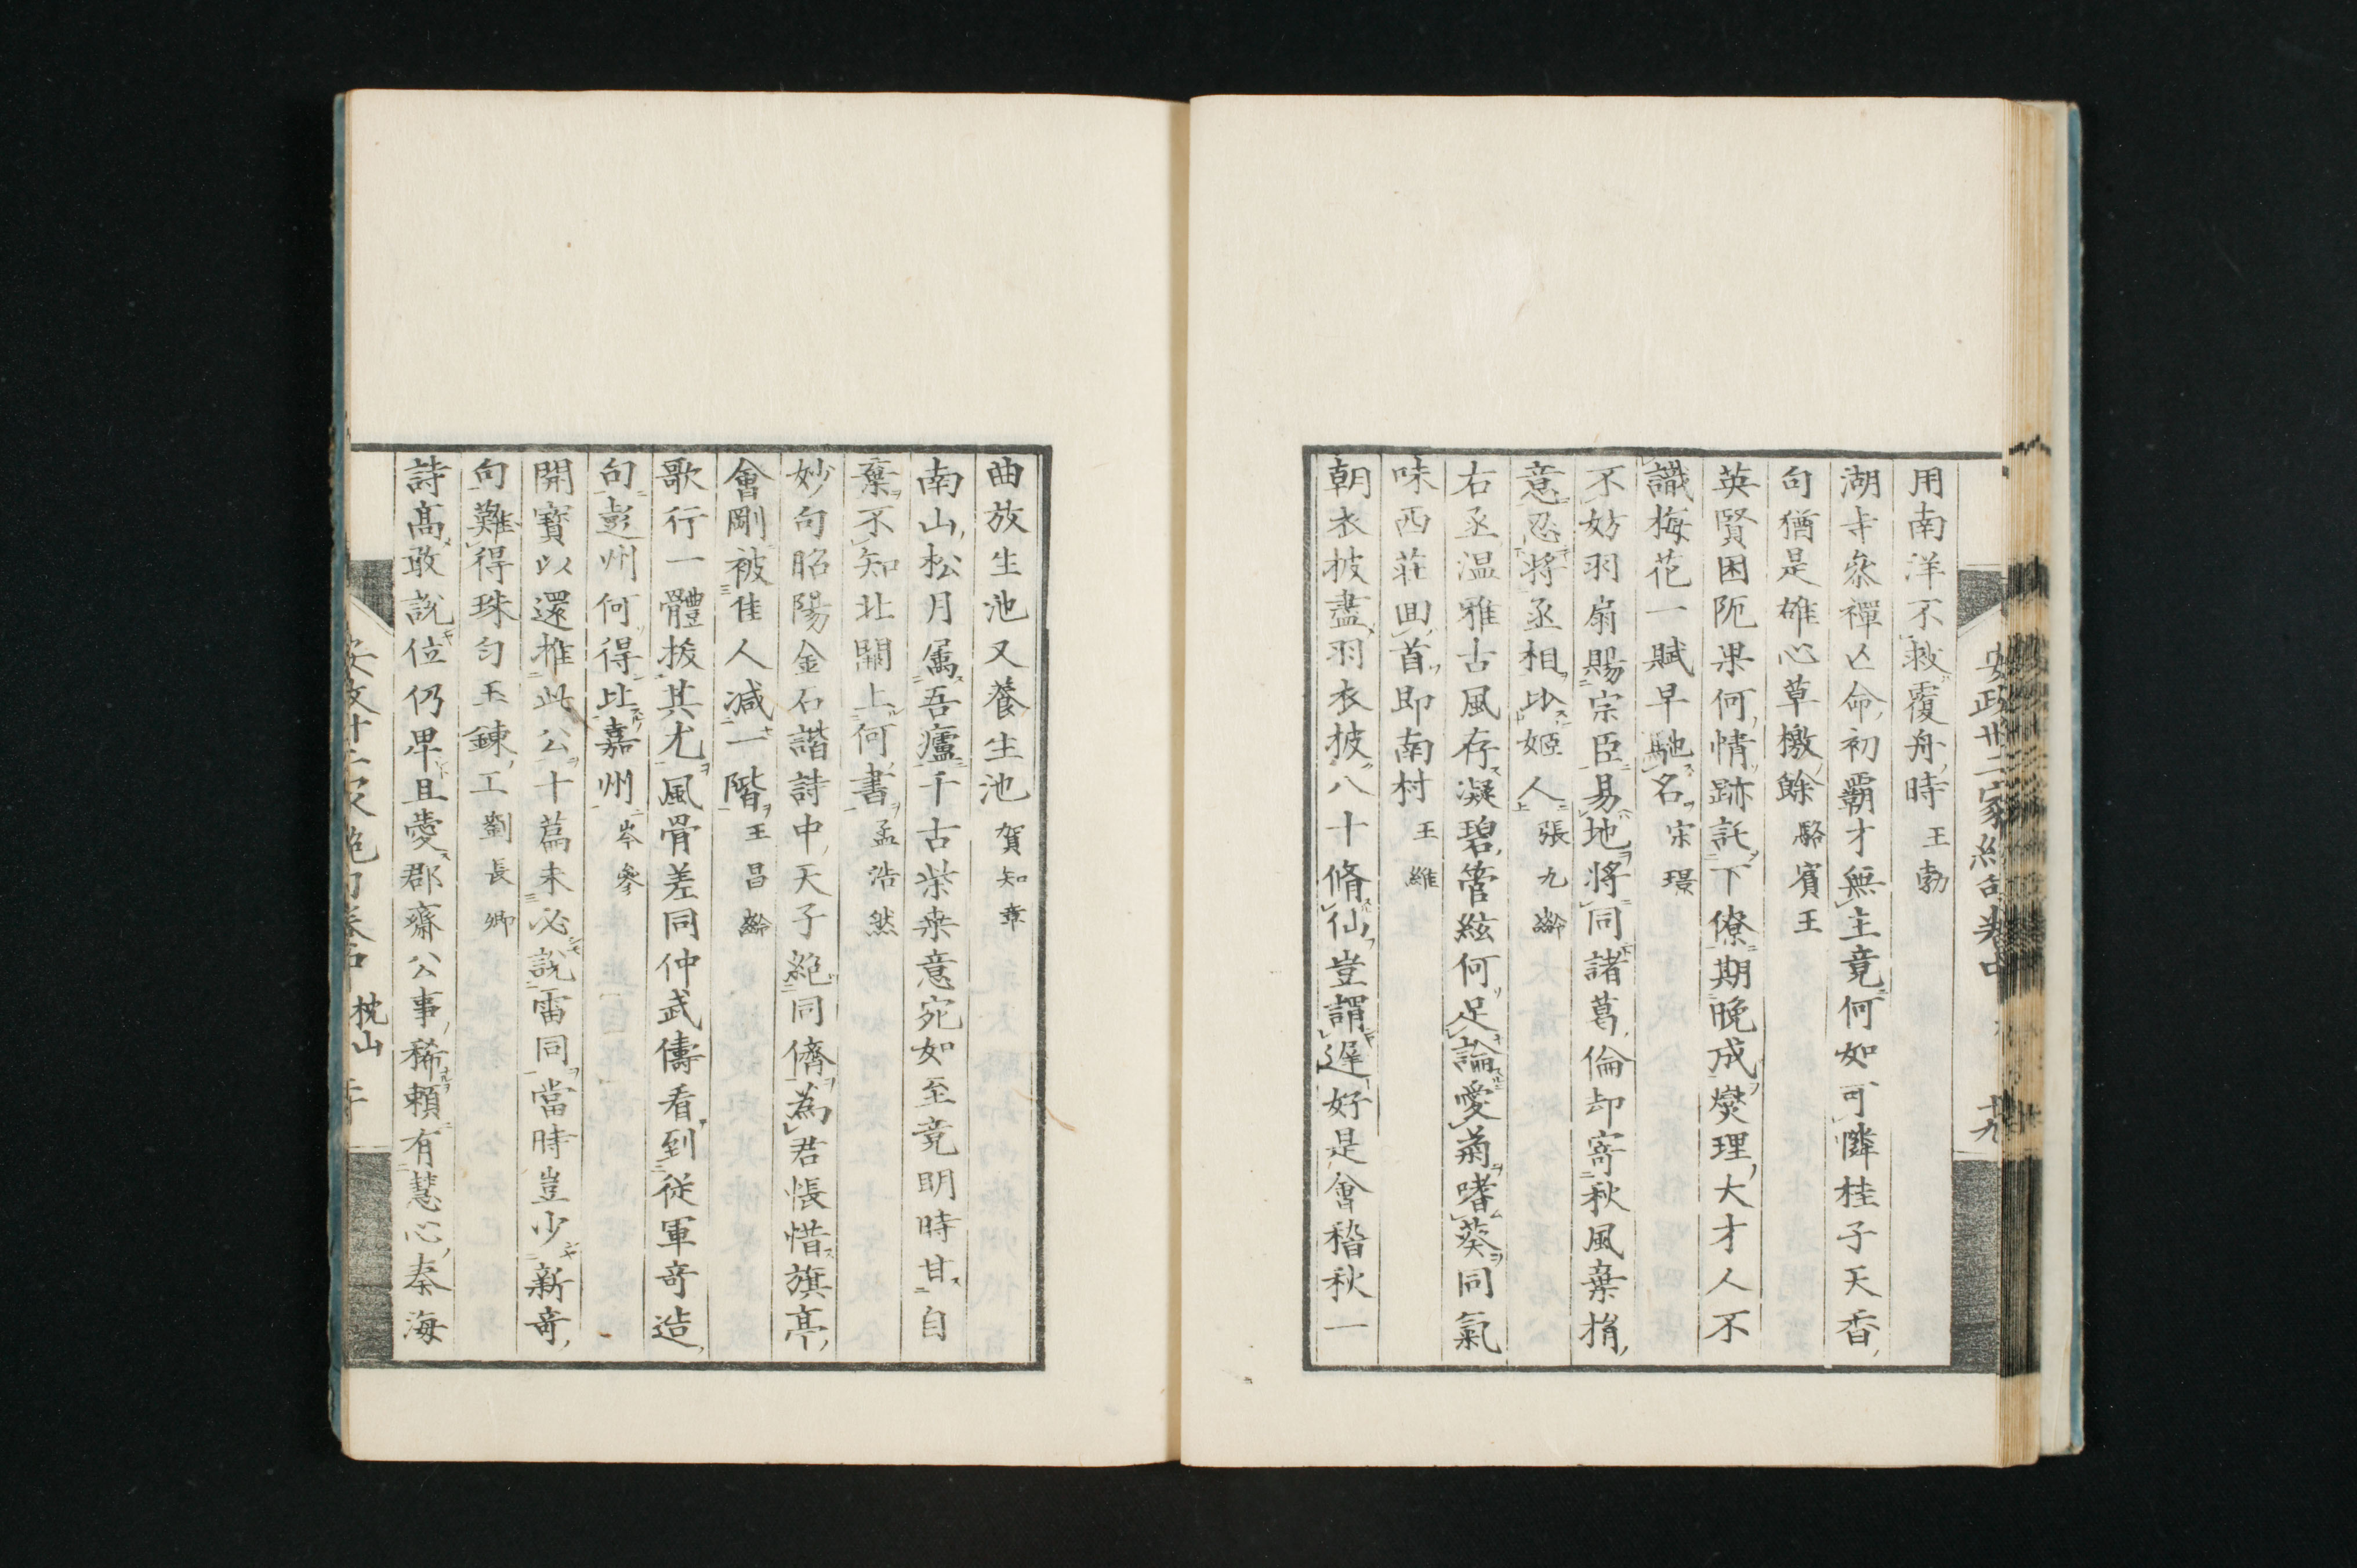 安政卅二家絶句卷中 十九
用南洋不救覆舟時 王勃
湖寺参禪亡命初覇才無主竟何如可憐桂子天香
句猶是雄心草檄餘 駱賓王
英賢困阨果何情跡託下僚期晚成燮理大才人不
識梅花一賦早馳名 宋璟
不妨羽扇賜宗臣易地將同諸葛倫却寄秋風棄捐
意忍將丞相比姬人 張九齡
右丞温雅古風存凝碧管絃何足論愛菊嗜葵同氣
味西莊囬首即南村 王維
朝衣披盡羽衣披八十脩仙豈謂遲好是會稽秋一
曲放生池又養生池 賀知章
南山松月属吾廬千古柴桒意宛如至竟明時甘自
棄不知北闕上何書 孟浩然
妙句昭陽金石諧詩中天子絶同儕為君悵惜旗亭
會剛被佳人减一階 王昌齡
歌行一體拔其尤風骨差同仲武儔看到從軍奇造
句彭州何得比嘉州 岑參
開寶以還推此公十篇未必說雷同當時豈少新奇
句難得珠勻玉鍊工 劉長卿
詩髙敢說位仍卑且愛郡齋公事稀頼有慧心秦海
安政卅二家絶句卷中 枕山